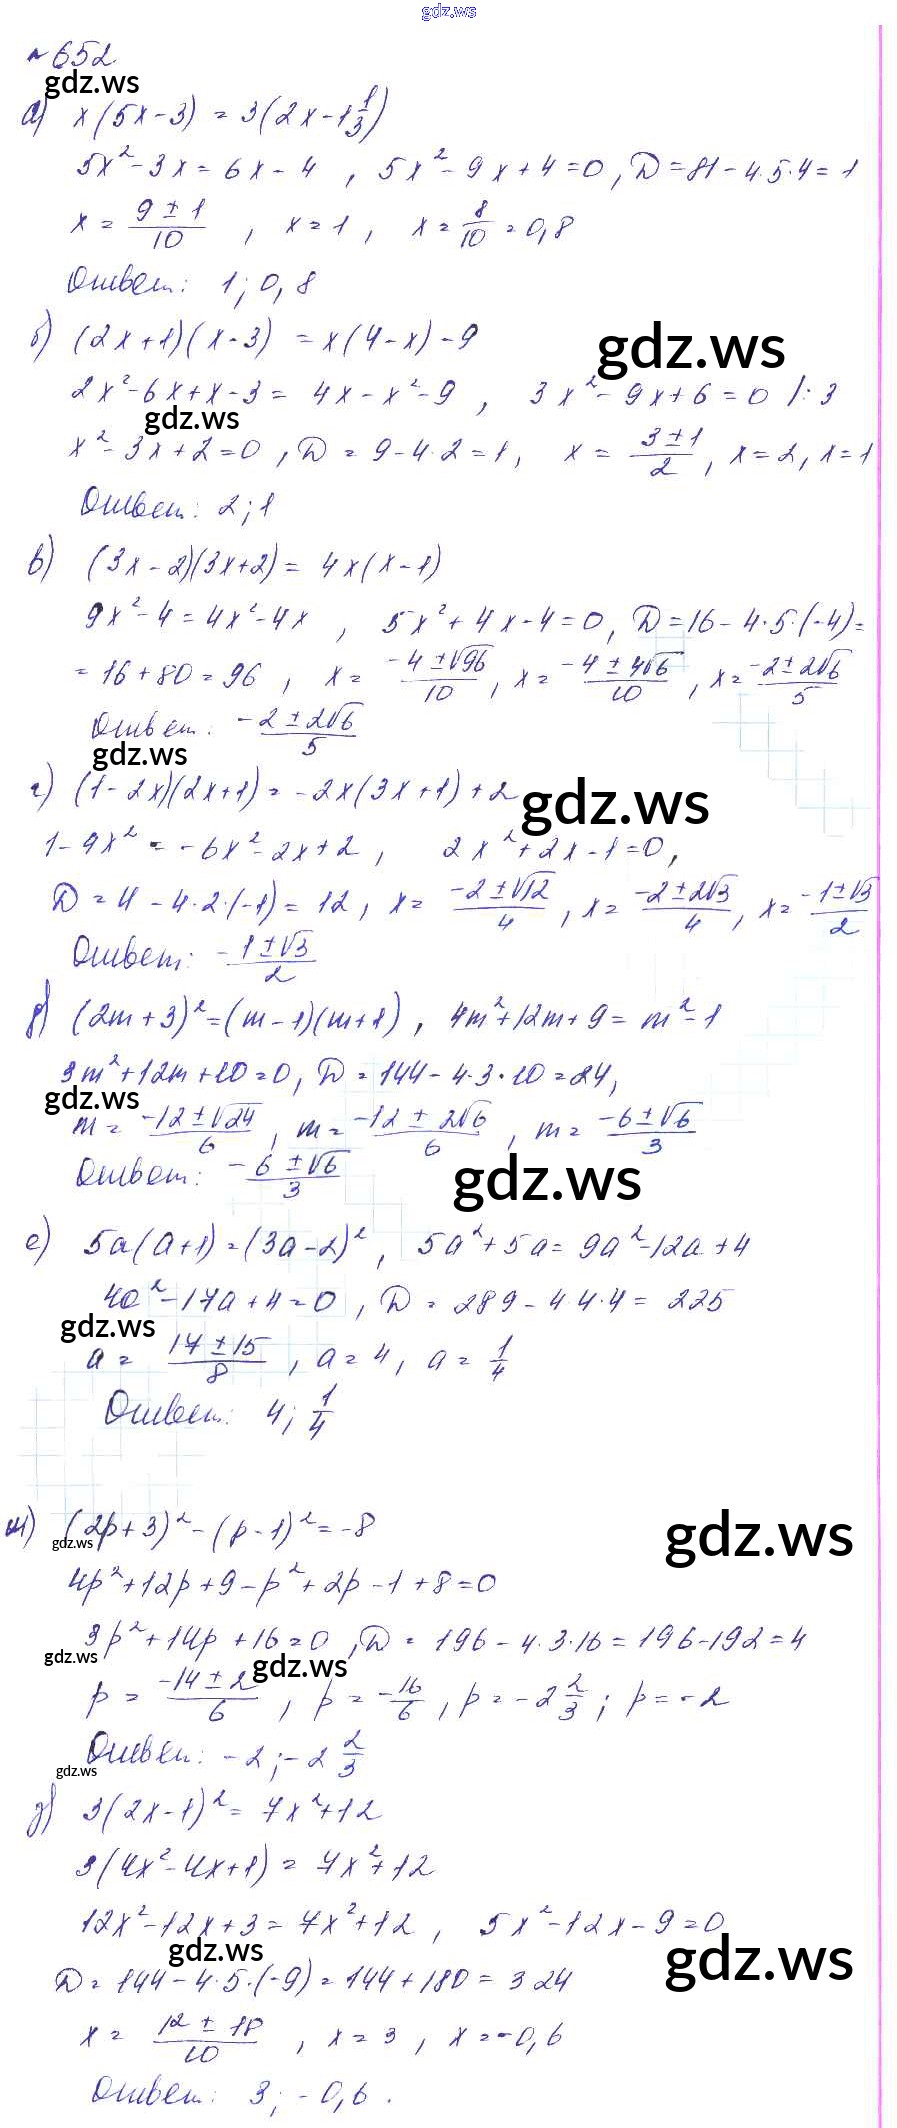 gdz.ws
№652
gdz.ws
а) x(5x-3) = 3(2x-1 1/3)
5x²-3x = 6x-4, 5x²-9x+4=0, D=81-4·5·4=1
x = (9±1)/10, x=1, x=8/10=0,8
Ответ: 1; 0,8
б) (2x+1)(x-3) = x(4-x)-9
gdz.ws
2x²-6x+x-3 = 4x-x²-9, 3x²-9x+6=0 /:3
gdz.ws
x²-3x+2=0, D=9-4·2=1, x=(3±1)/2, x=2, x=1
Ответ: 2; 1
в) (3x-2)(3x+2) = 4x(x-1)
9x²-4=4x²-4x, 5x²+4x-4=0, D=16-4·5·(-4)=
=16+80=96, x=(-4±√96)/10, x=(-4±4√6)/10, x=(-2±2√6)/5
Ответ: (-2±2√6)/5
gdz.ws
г) (1-2x)(2x+1) = -2x(3x+1)+2
gdz.ws
1-4x² = -6x²-2x+2, 2x²+2x-1=0,
D=4-4·2·(-1)=12, x=(-2±√12)/4, x=(-2±2√3)/4, x=(-1±√3)/2
Ответ: (-1±√3)/2
д) (2m+3)²=(m-1)(m+1), 4m²+12m+9=m²-1
3m²+12m+10=0, D=144-4·3·10=24,
gdz.ws
m=(-12±√24)/6, m=(-12±2√6)/6, m=(-6±√6)/3
Ответ: (-6±√6)/3
gdz.ws
е) 5a(a+1)=(3a-2)², 5a²+5a=9a²-12a+4
4a²-17a+4=0, D=289-4·4·4=225
gdz.ws
a=(17±15)/8, a=4, a=1/4
Ответ: 4; 1/4
ж) (2p+3)²-(p-1)²=-8
gdz.ws
gdz.ws
4p²+12p+9-p²+2p-1+8=0
3p²+14p+16=0, D=196-4·3·16=196-192=4
gdz.ws
gdz.ws
p=(-14±2)/6, p=-16/6, p=-2 2/3; p=-2
Ответ: -2; -2 2/3
gdz.ws
з) 3(2x-1)²=7x²+12
3(4x²-4x+1)=7x²+12
12x²-12x+3=7x²+12, 5x²-12x-9=0
gdz.ws
gdz.ws
D=144-4·5·(-9)=144+180=324
x=(12±18)/10, x=3, x=-0,6
Ответ: 3; -0,6.